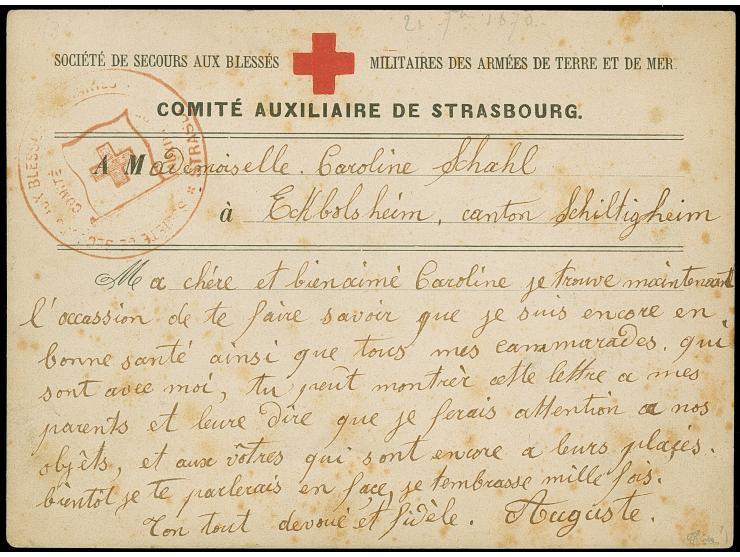 21 7bre 1870.
SOCIÉTÉ DE SECOURS AUX BLESSÉS MILITAIRES DES ARMÉES DE TERRE ET DE MER.
COMITÉ AUXILIAIRE DE STRASBOURG.
A Mademoiselle. Caroline Schahl
à Eckbolsheim, canton Schiltigheim
Ma chére et bienaimé Caroline je trouve maintenant
l'occassion de te faire savoir que je suis encore en
bonne santé ainsi que tous mes cammarades. qui
sont avec moi, tu peut montrèr cette lettre a mes
parents et leure dire que je ferais attention a nos
objèts, et aux vôtres qui sont encore a leurs plaçes.
bientôt je te parlerais en façe, je tembrasse mille fois.
Ton tout devoué et fidèle. Auguste.